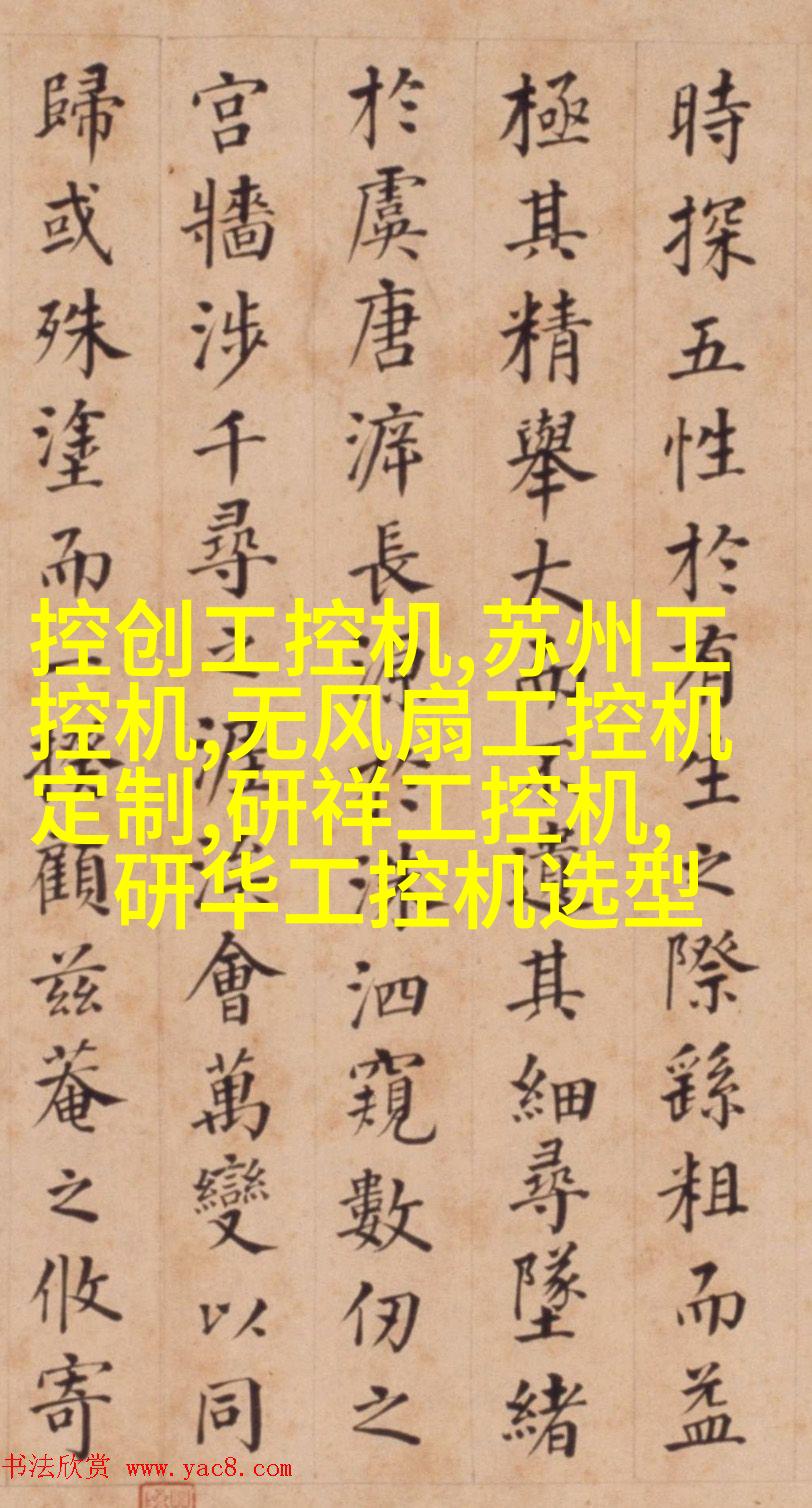 時探五性於有生之際繇粗而益
極其精舉大而不遺其細尋墜緒
於虞唐長源於洙泗窺數仞之
宮牆涉千尋之涯涘會萬變以同
歸或殊塗而一揆顧兹菴之攸寄
控创工控机,苏州工
控机,无风扇工控机
定制,研祥工控机,
研华工控机选型
书法欣赏 www.yac8.com